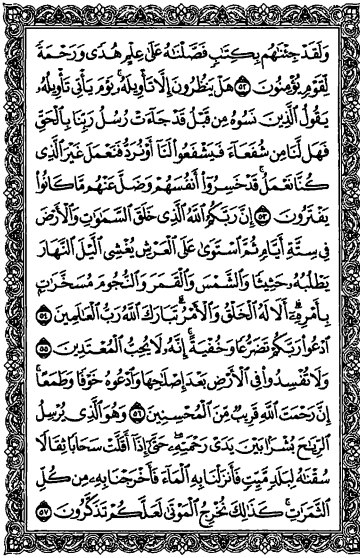 وَلَقَدْ جِئْنَٰهُم بِكِتَٰبٍ فَصَّلْنَٰهُ عَلَىٰ عِلْمٍ هُدًى وَرَحْمَةً
لِّقَوْمٍ يُؤْمِنُونَ ۝٥٢ هَلْ يَنظُرُونَ إِلَّا تَأْوِيلَهُۥ ۚ يَوْمَ يَأْتِى تَأْوِيلُهُۥ
يَقُولُ ٱلَّذِينَ نَسُوهُ مِن قَبْلُ قَدْ جَآءَتْ رُسُلُ رَبِّنَا بِٱلْحَقِّ
فَهَل لَّنَا مِن شُفَعَآءَ فَيَشْفَعُوا۟ لَنَآ أَوْ نُرَدُّ فَنَعْمَلَ غَيْرَ ٱلَّذِى
كُنَّا نَعْمَلُ ۚ قَدْ خَسِرُوٓا۟ أَنفُسَهُمْ وَضَلَّ عَنْهُم مَّا كَانُوا۟
يَفْتَرُونَ ۝٥٣ إِنَّ رَبَّكُمُ ٱللَّهُ ٱلَّذِى خَلَقَ ٱلسَّمَٰوَٰتِ وَٱلْأَرْضَ
فِى سِتَّةِ أَيَّامٍ ثُمَّ ٱسْتَوَىٰ عَلَى ٱلْعَرْشِ يُغْشِى ٱلَّيْلَ ٱلنَّهَارَ
يَطْلُبُهُۥ حَثِيثًا وَٱلشَّمْسَ وَٱلْقَمَرَ وَٱلنُّجُومَ مُسَخَّرَٰتٍۭ
بِأَمْرِهِۦٓ ۗ أَلَا لَهُ ٱلْخَلْقُ وَٱلْأَمْرُ ۗ تَبَارَكَ ٱللَّهُ رَبُّ ٱلْعَٰلَمِينَ ۝٥٤
ٱدْعُوا۟ رَبَّكُمْ تَضَرُّعًا وَخُفْيَةً ۚ إِنَّهُۥ لَا يُحِبُّ ٱلْمُعْتَدِينَ ۝٥٥
وَلَا تُفْسِدُوا۟ فِى ٱلْأَرْضِ بَعْدَ إِصْلَٰحِهَا وَٱدْعُوهُ خَوْفًا وَطَمَعًا ۚ
إِنَّ رَحْمَتَ ٱللَّهِ قَرِيبٌ مِّنَ ٱلْمُحْسِنِينَ ۝٥٦ وَهُوَ ٱلَّذِى يُرْسِلُ
ٱلرِّيَٰحَ بُشْرًۢا بَيْنَ يَدَىْ رَحْمَتِهِۦ ۖ حَتَّىٰٓ إِذَآ أَقَلَّتْ سَحَابًا ثِقَالًا
سُقْنَٰهُ لِبَلَدٍ مَّيِّتٍ فَأَنزَلْنَا بِهِ ٱلْمَآءَ فَأَخْرَجْنَا بِهِۦ مِن كُلِّ
ٱلثَّمَرَٰتِ ۚ كَذَٰلِكَ نُخْرِجُ ٱلْمَوْتَىٰ لَعَلَّكُمْ تَذَكَّرُونَ ۝٥٧